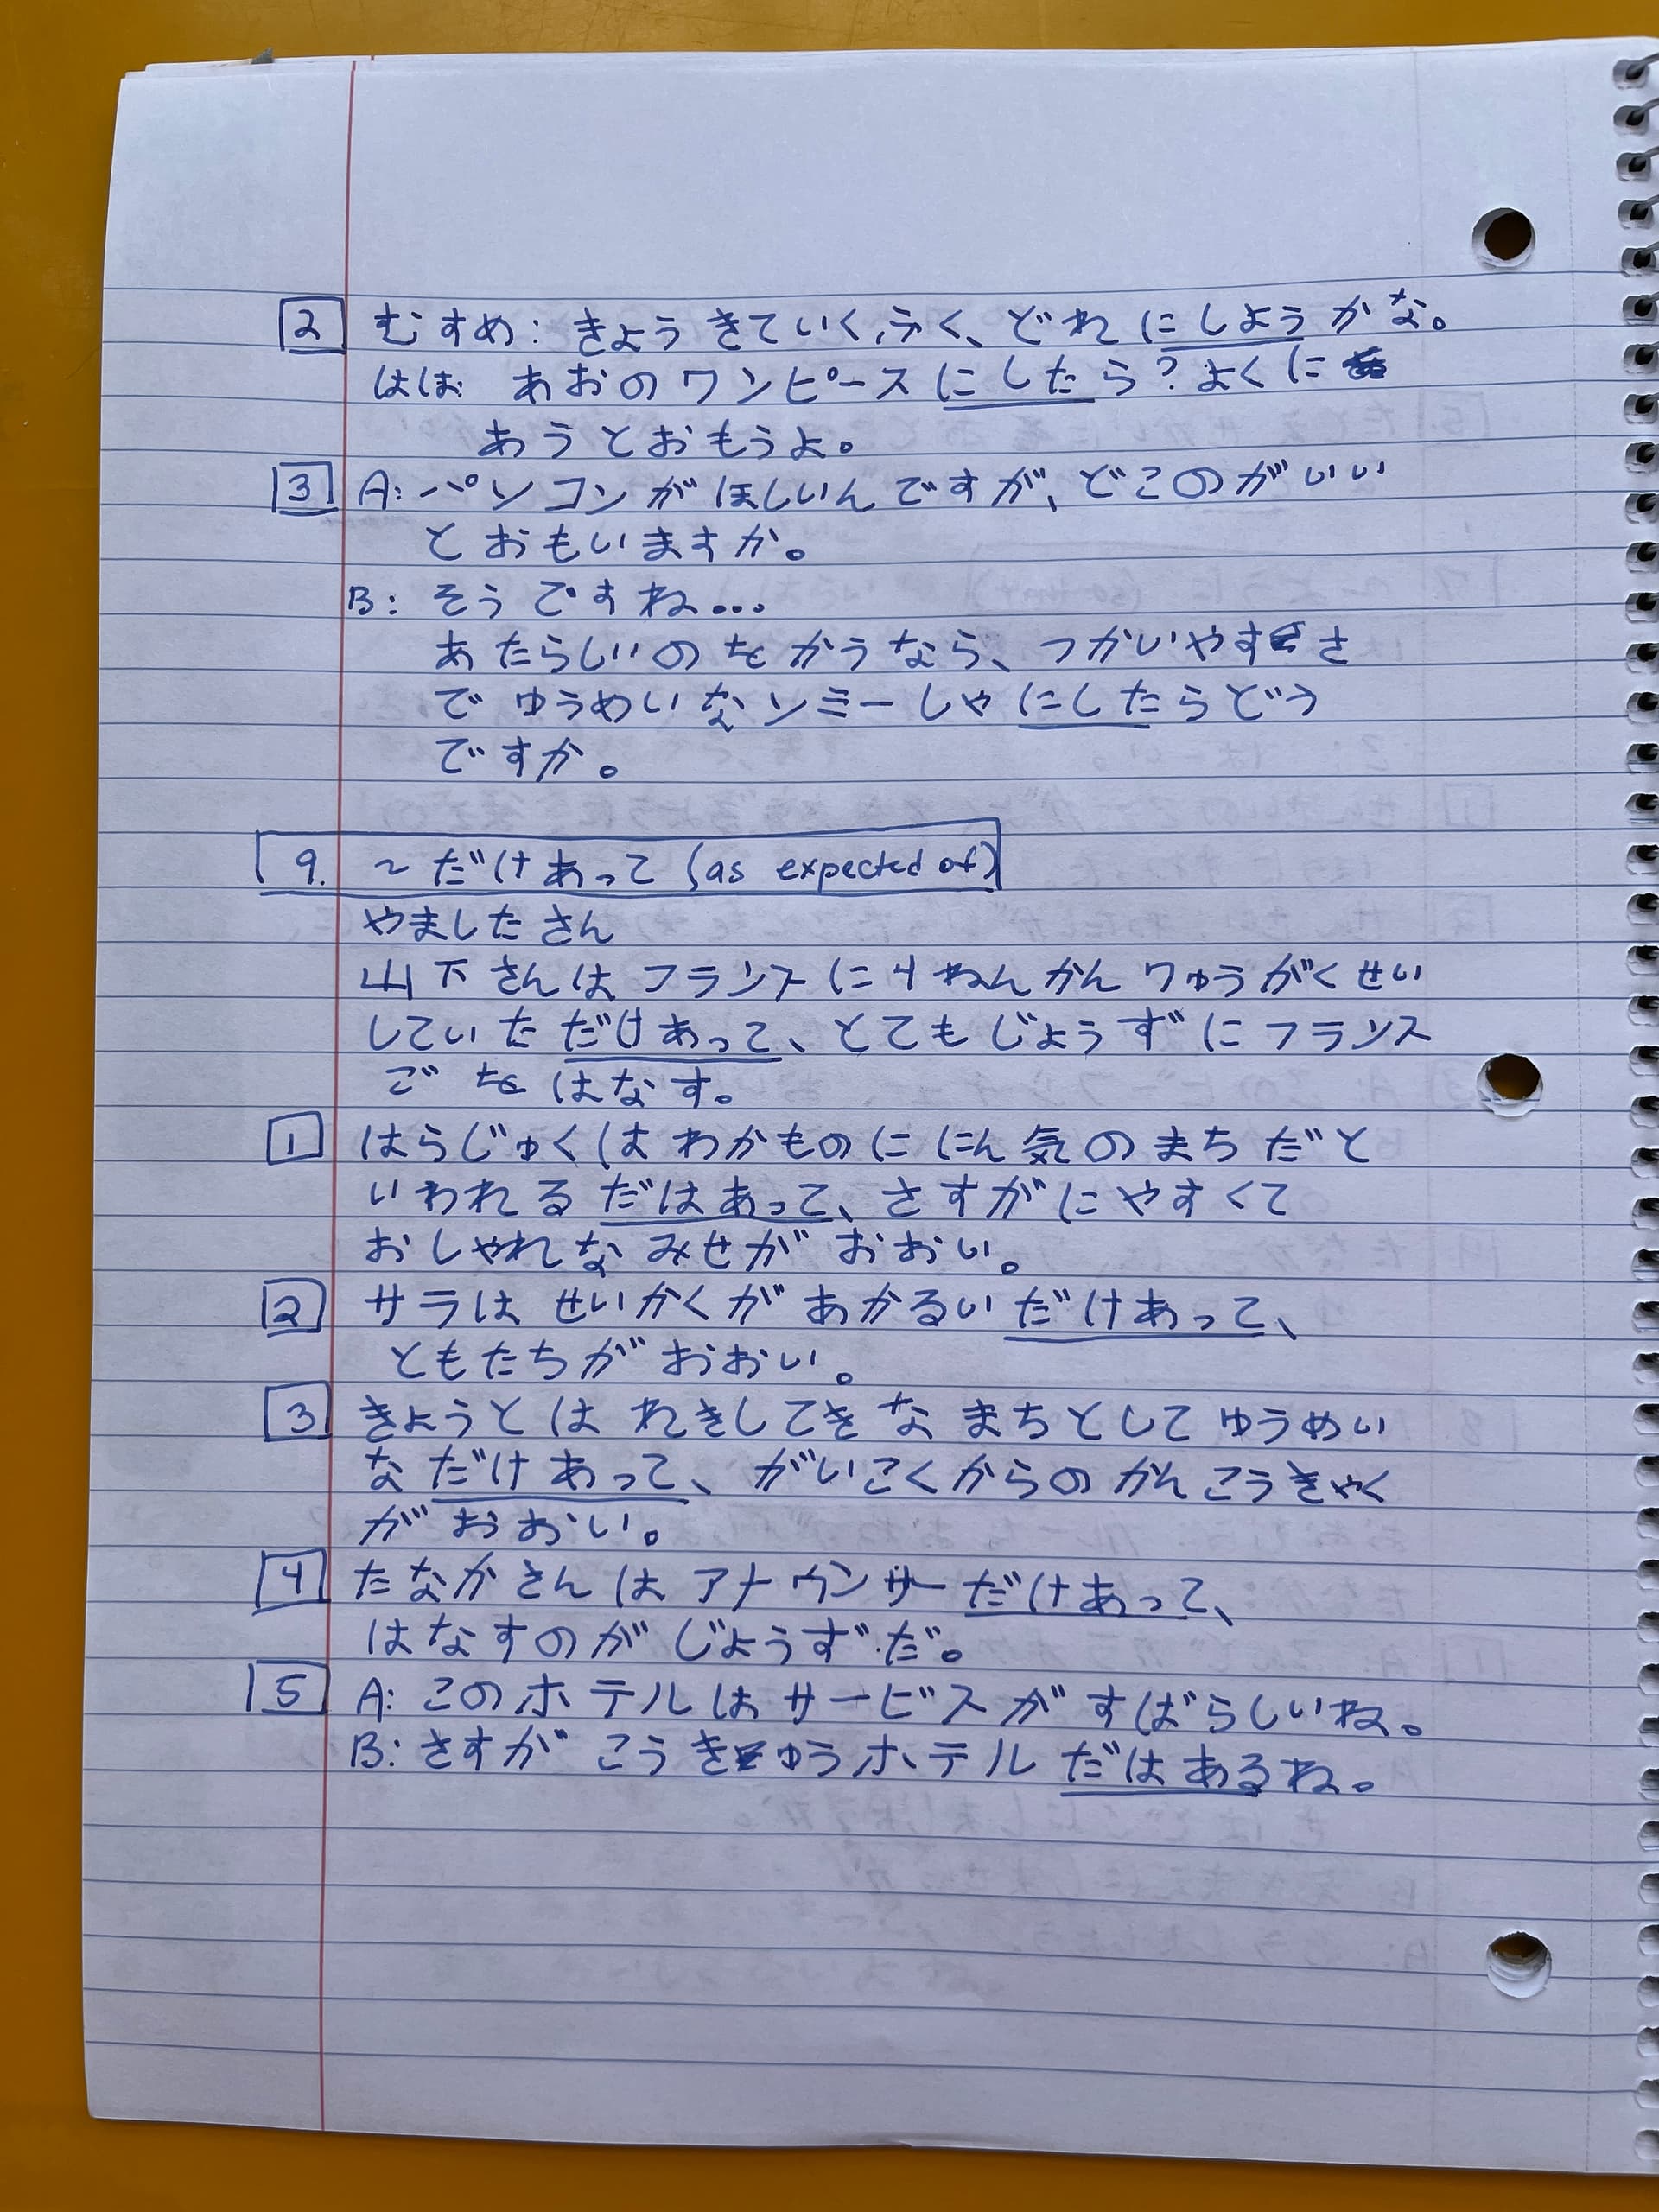 2 むすめ: きょうきていくふく、どれにしようかな。
はは あおのワンピースにしたら?よくに
あうとおもうよ。
3 A: パソコンがほしいんですが、どこのがいい
とおもいますか。
B: そうですね...
あたらしいのをかうなら、つかいやすさ
でゆうめいなソミーしゃにしたらどう
ですか。
9. ~だけあって (as expected of)
やましたさん
山下さんはフランスに4ねんかんりゅうがくせい
していただけあって、とてもじょうずにフランス
ごをはなす。
1 はらじゅくはわかものににん気のまちだと
いわれるだはあって、さすがにやすくて
おしゃれなみせがおおい。
2 サラはせいかくがあかるいだけあって、
ともたちがおおい。
3 きょうとはれきしてきなまちとしてゆうめい
なだけあって、がいこくからのかんこうきゃく
がおおい。
4 たなかさんはアナウンサーだけあって、
はなすのがじょうずだ。
5 A: このホテルはサービスがすばらしいね。
B: さすがこうきゅうホテルだはあるね。